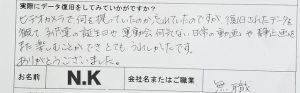 実際にデータ復旧をしてみていかがですか?
ビデオカメラで何を撮っていたのか忘れていたのですが、復旧されたデータを
観て、お誕生の誕生日や運動会、何気ない日常の動画や静止画を
また楽しむことができとてもうれしかったです。
ありがとうございました。
お名前 N.K 会社名またはご職業 無職